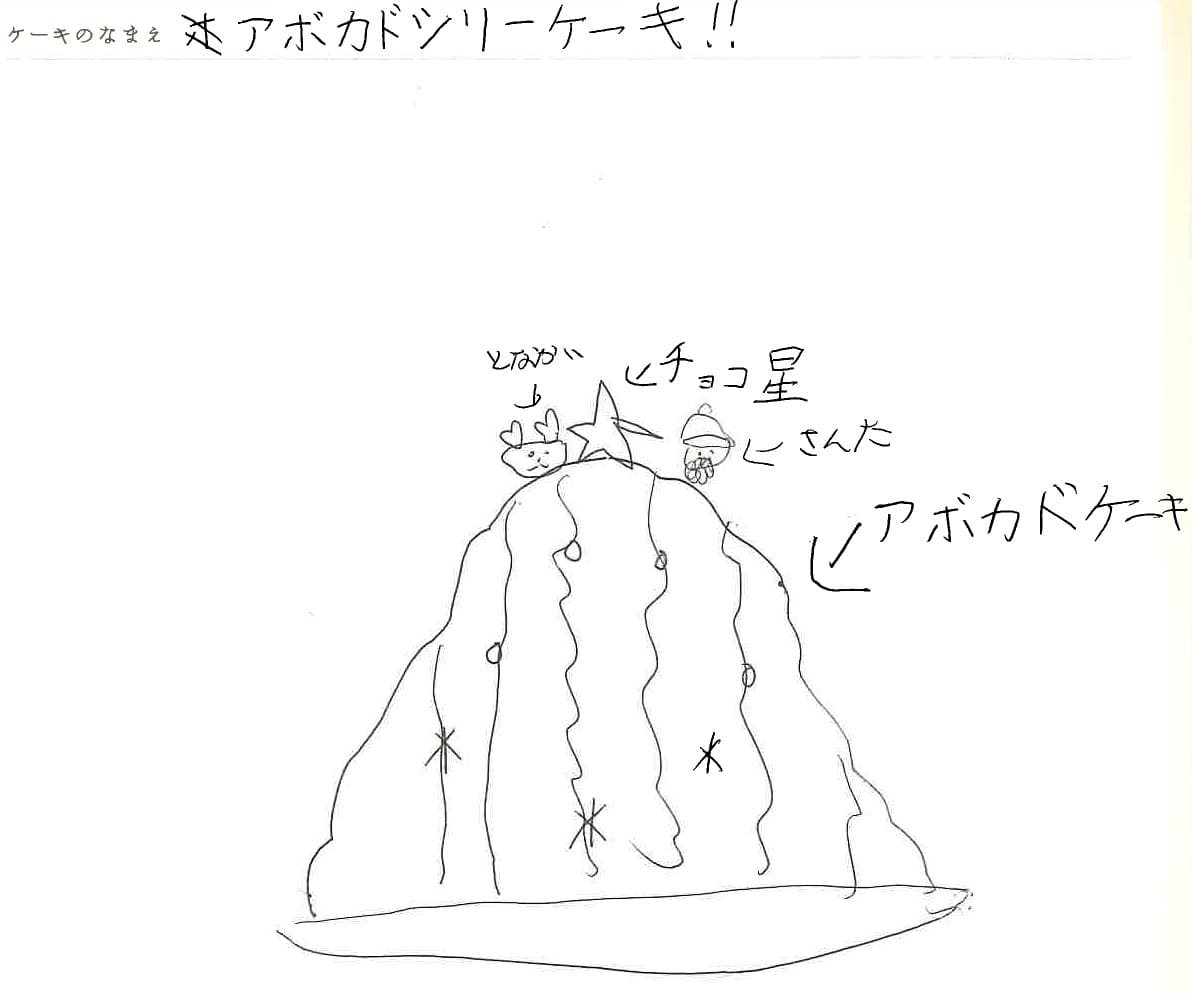 ケーキのなまえ アボカドツリーケーキ!!
となかい
チョコ星
さんた
アボカドケーキ